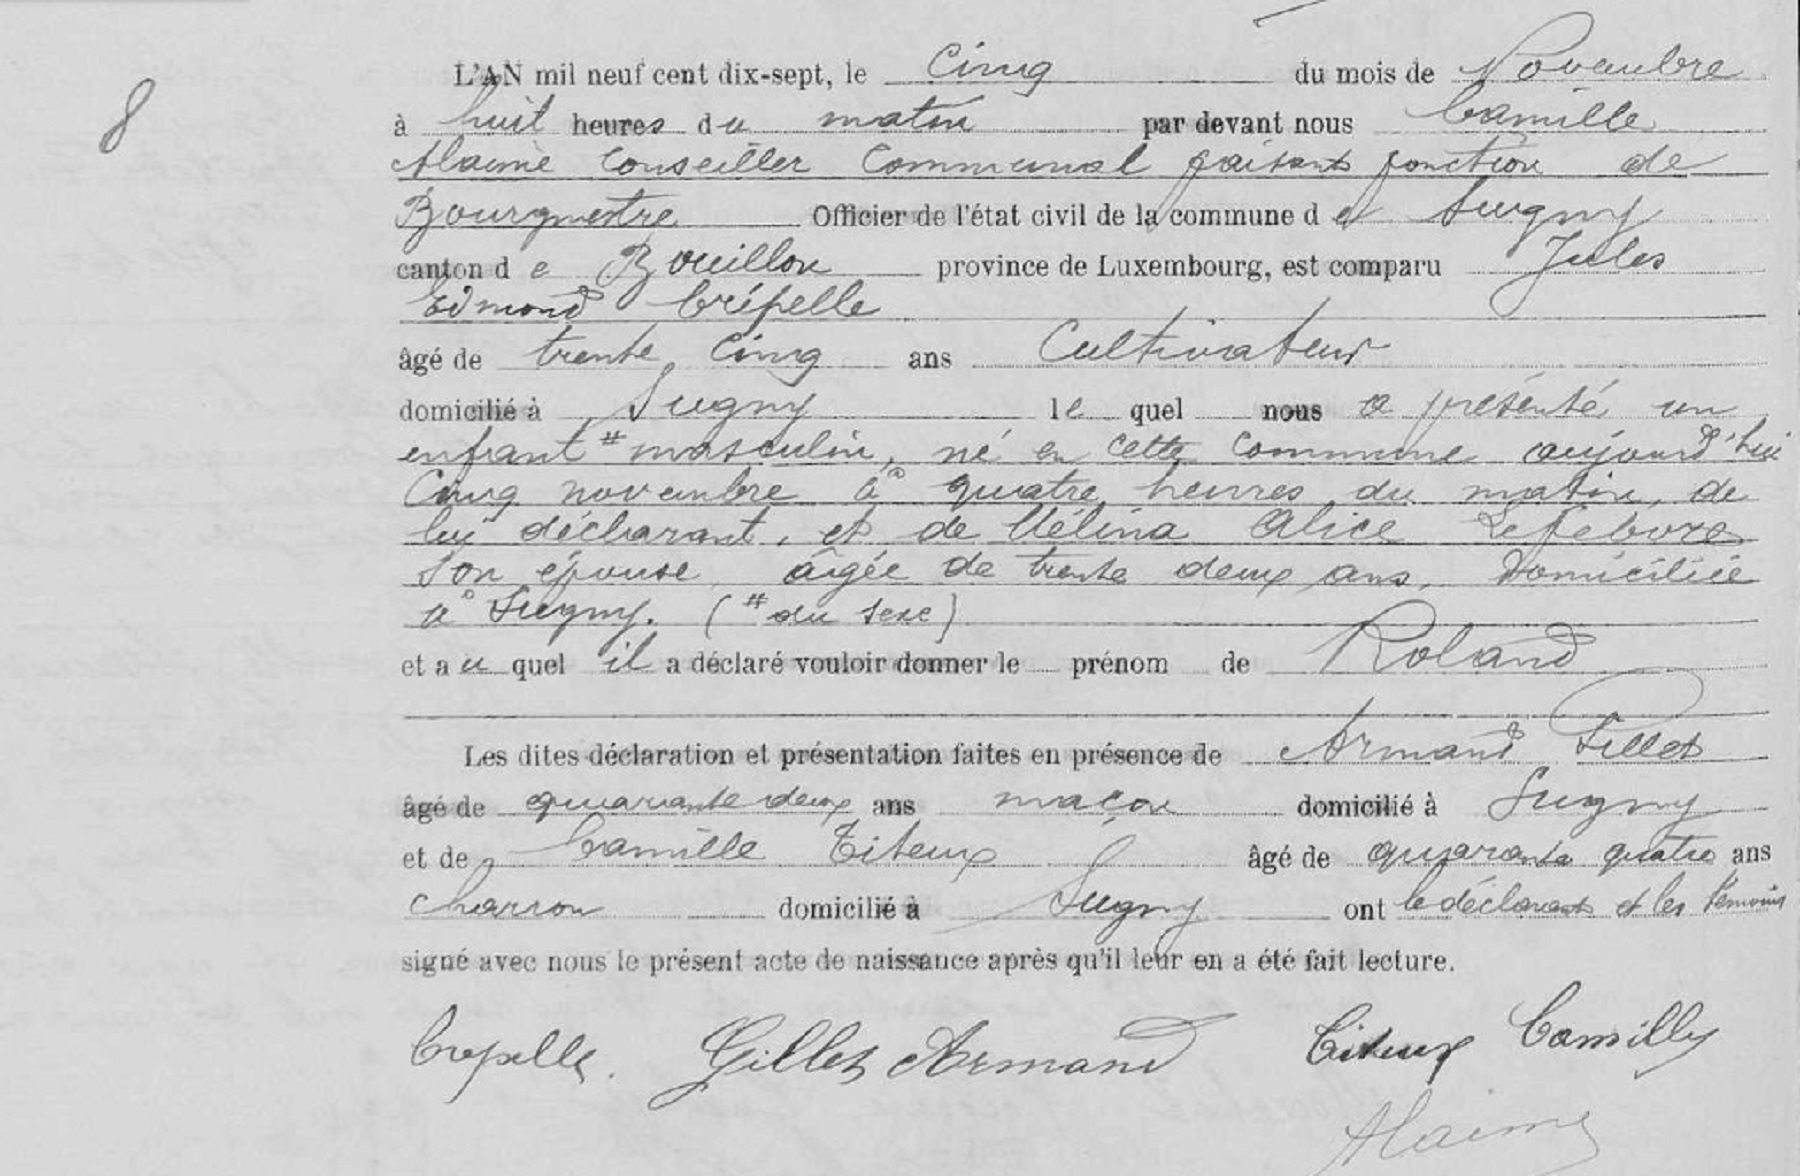 L'AN mil neuf cent dix-sept, le Cinq du mois de Novembre
8
à huit heures du matin par devant nous Camille
Alaime Conseiller Communal faisant fonction de
Bourgmestre Officier de l'état civil de la commune de Sugny
canton de Bouillon province de Luxembourg, est comparu Jules
Edmond Crépelle
âgé de trente cinq ans Cultivateur
domicilié à Sugny lequel nous a présenté un
enfant # masculin, né en cette commune aujourd'hui
Cinq novembre à quatre heures du matin, de
lui déclarant, et de Mélina Alice Lefebvre
son épouse, âgée de trente deux ans, domiciliée
à Sugny. (# du sexe)
et au quel il a déclaré vouloir donner le prénom de Roland
Les dites déclaration et présentation faites en présence de Armand Gillet
âgé de quarante deux ans maçon domicilié à Sugny
et de Camille Titeux âgé de quarante quatre ans
charron domicilié à Sugny ont le déclarant et les témoins
signé avec nous le présent acte de naissance après qu'il leur en a été fait lecture.
Crepelle. Gillet Armand Titeux Camille
Alaime